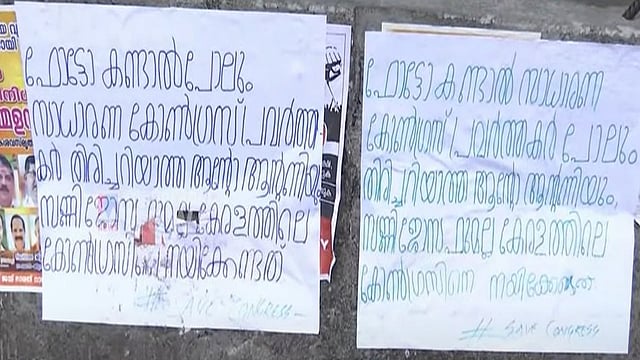 ഫോട്ടോ കണ്ടാൽപോലും
സാധാരണ കോൺഗ്രസ് പ്രവർത്ത
കർ തിരിച്ചറിയാത്ത ആന്റോ ആന്റണിയും
സണ്ണി ജോസഫുമല്ല കേരളത്തിലെ
കോൺഗ്രസിനെ നയിക്കേണ്ടത്
# SAVE CONGRESS -
ഫോട്ടോ കണ്ടാൽ സാധാരണ
കോൺഗ്രസ് പ്രവർത്തകർ പോലും
തിരിച്ചറിയാത്ത ആന്റോ ആന്റണിയും,
സണ്ണി ജോസഫുമല്ല കേരളത്തിലെ
കോൺഗ്രസിനെ നയിക്കേണ്ടത്
# SAVE CONGRESS